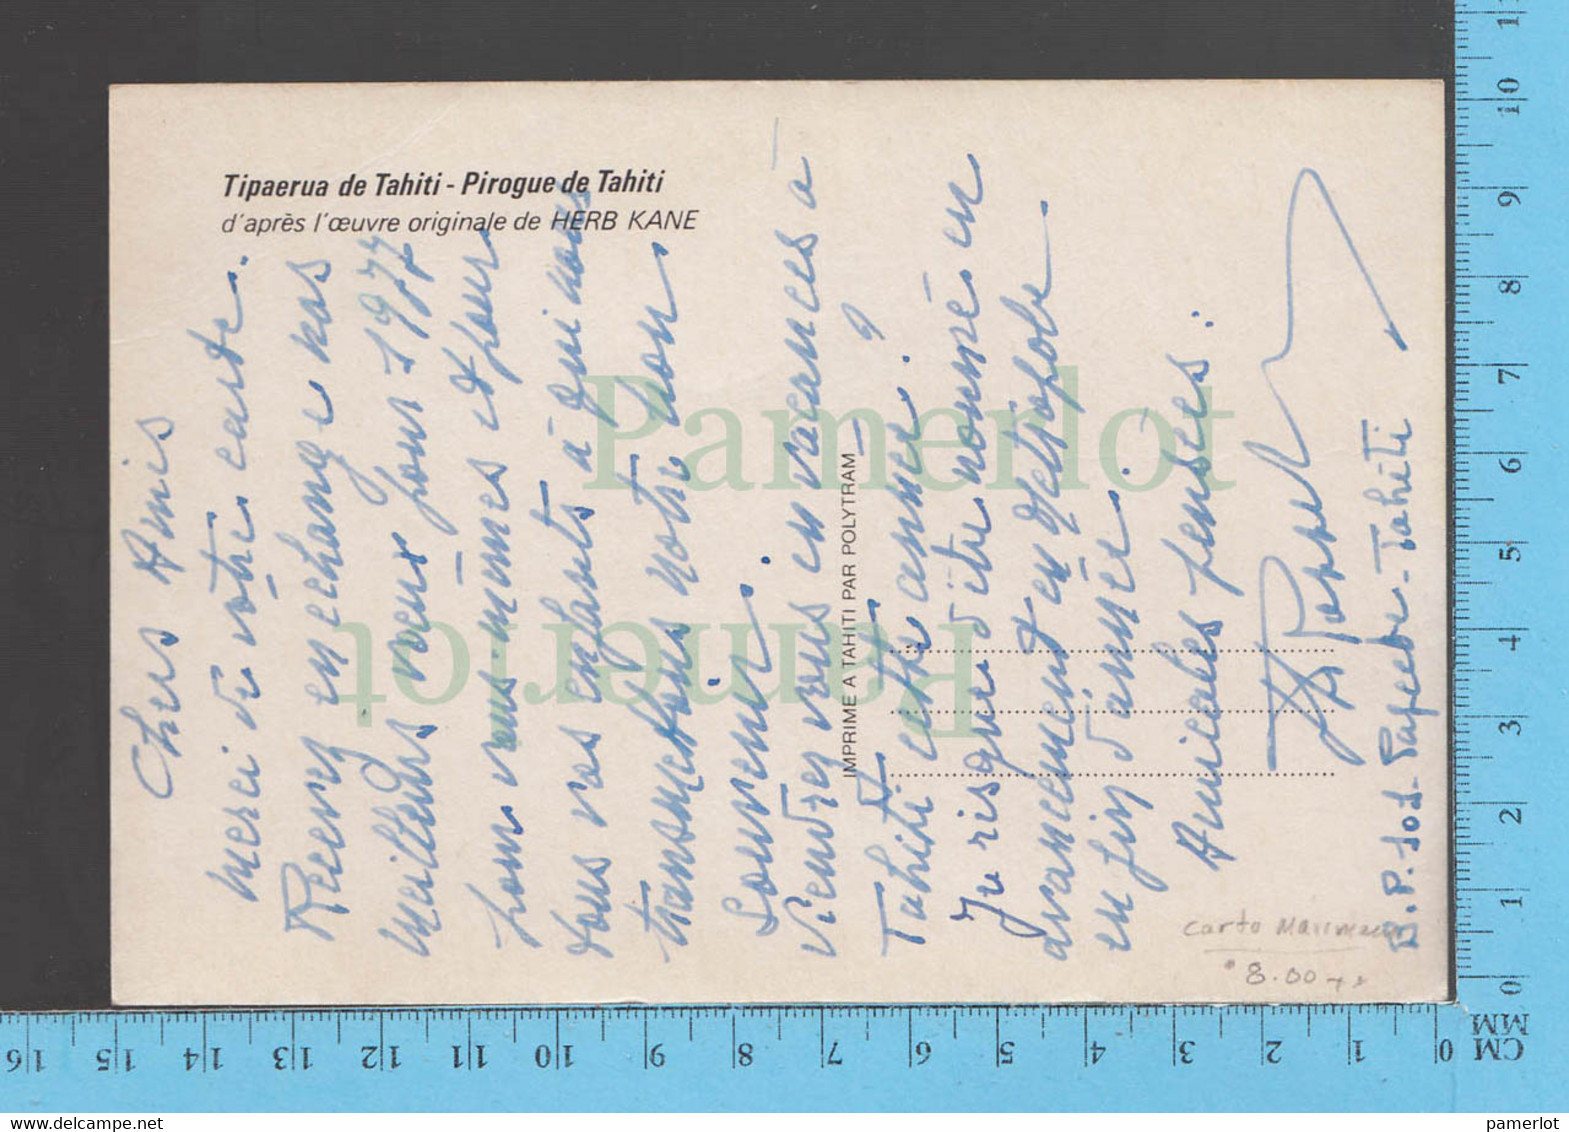 Tipaerua de Tahiti - Pirogue de Tahiti
d'après l'œuvre originale de HERB KANE
Chers Amis
Merci de votre carte.
Recevez en echange nos
meilleurs vœux pour 1977
pour vous mêmes et pour
tous vos enfants à qui nous
transmettons notre bon
Souvenir.
Viendrez vous en vacances à
Tahiti cette année ?
Je risque d'être nommé en
avancement en Metropole
en fin d'année.
Amicales pensées.
B.P. Papeete - Tahiti
IMPRIME A TAHITI PAR POLYTRAM
carto
8.00
Pamerlot
Pamerlot
CM
MM
0 1 2 3 4 5 6 7 8 9 10 11
CM
MM
0 1 2 3 4 5 6 7 8 9 10 11 12 13 14 15 16
pamerlot